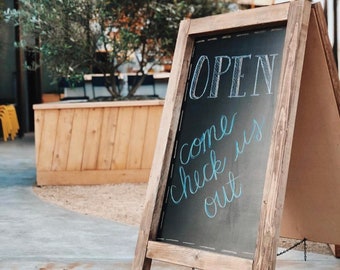 OPEN
come
check us
out